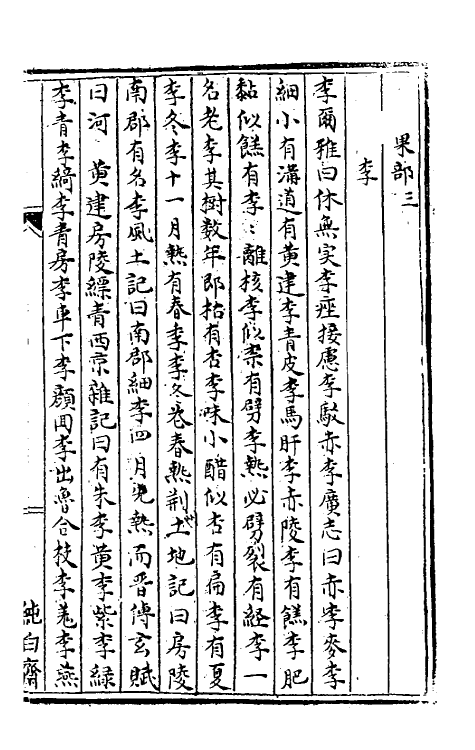 果部三
李
李爾雅曰休無实李痤接慮李駁赤李廣志曰赤李麥李
細小有溝道有黃建李青皮李馬肝李赤陵李有餻李肥
黏似餻有李〻離核李似柰有劈李熟必劈裂有経李一
名老李其樹数年即枯有杏李味小醋似杏有扁李有夏
李冬李十一月熟有春李李冬花春熟荆土地記曰房陵
南郡有名李風土記曰南郡細李四月先熟而晋傅玄賦
曰河 黄建房陵縹青西京雜記曰有朱李黄李紫李緑
李青李綺李青房李車下李顔囬李出魯合枝李羗李燕
純白齋